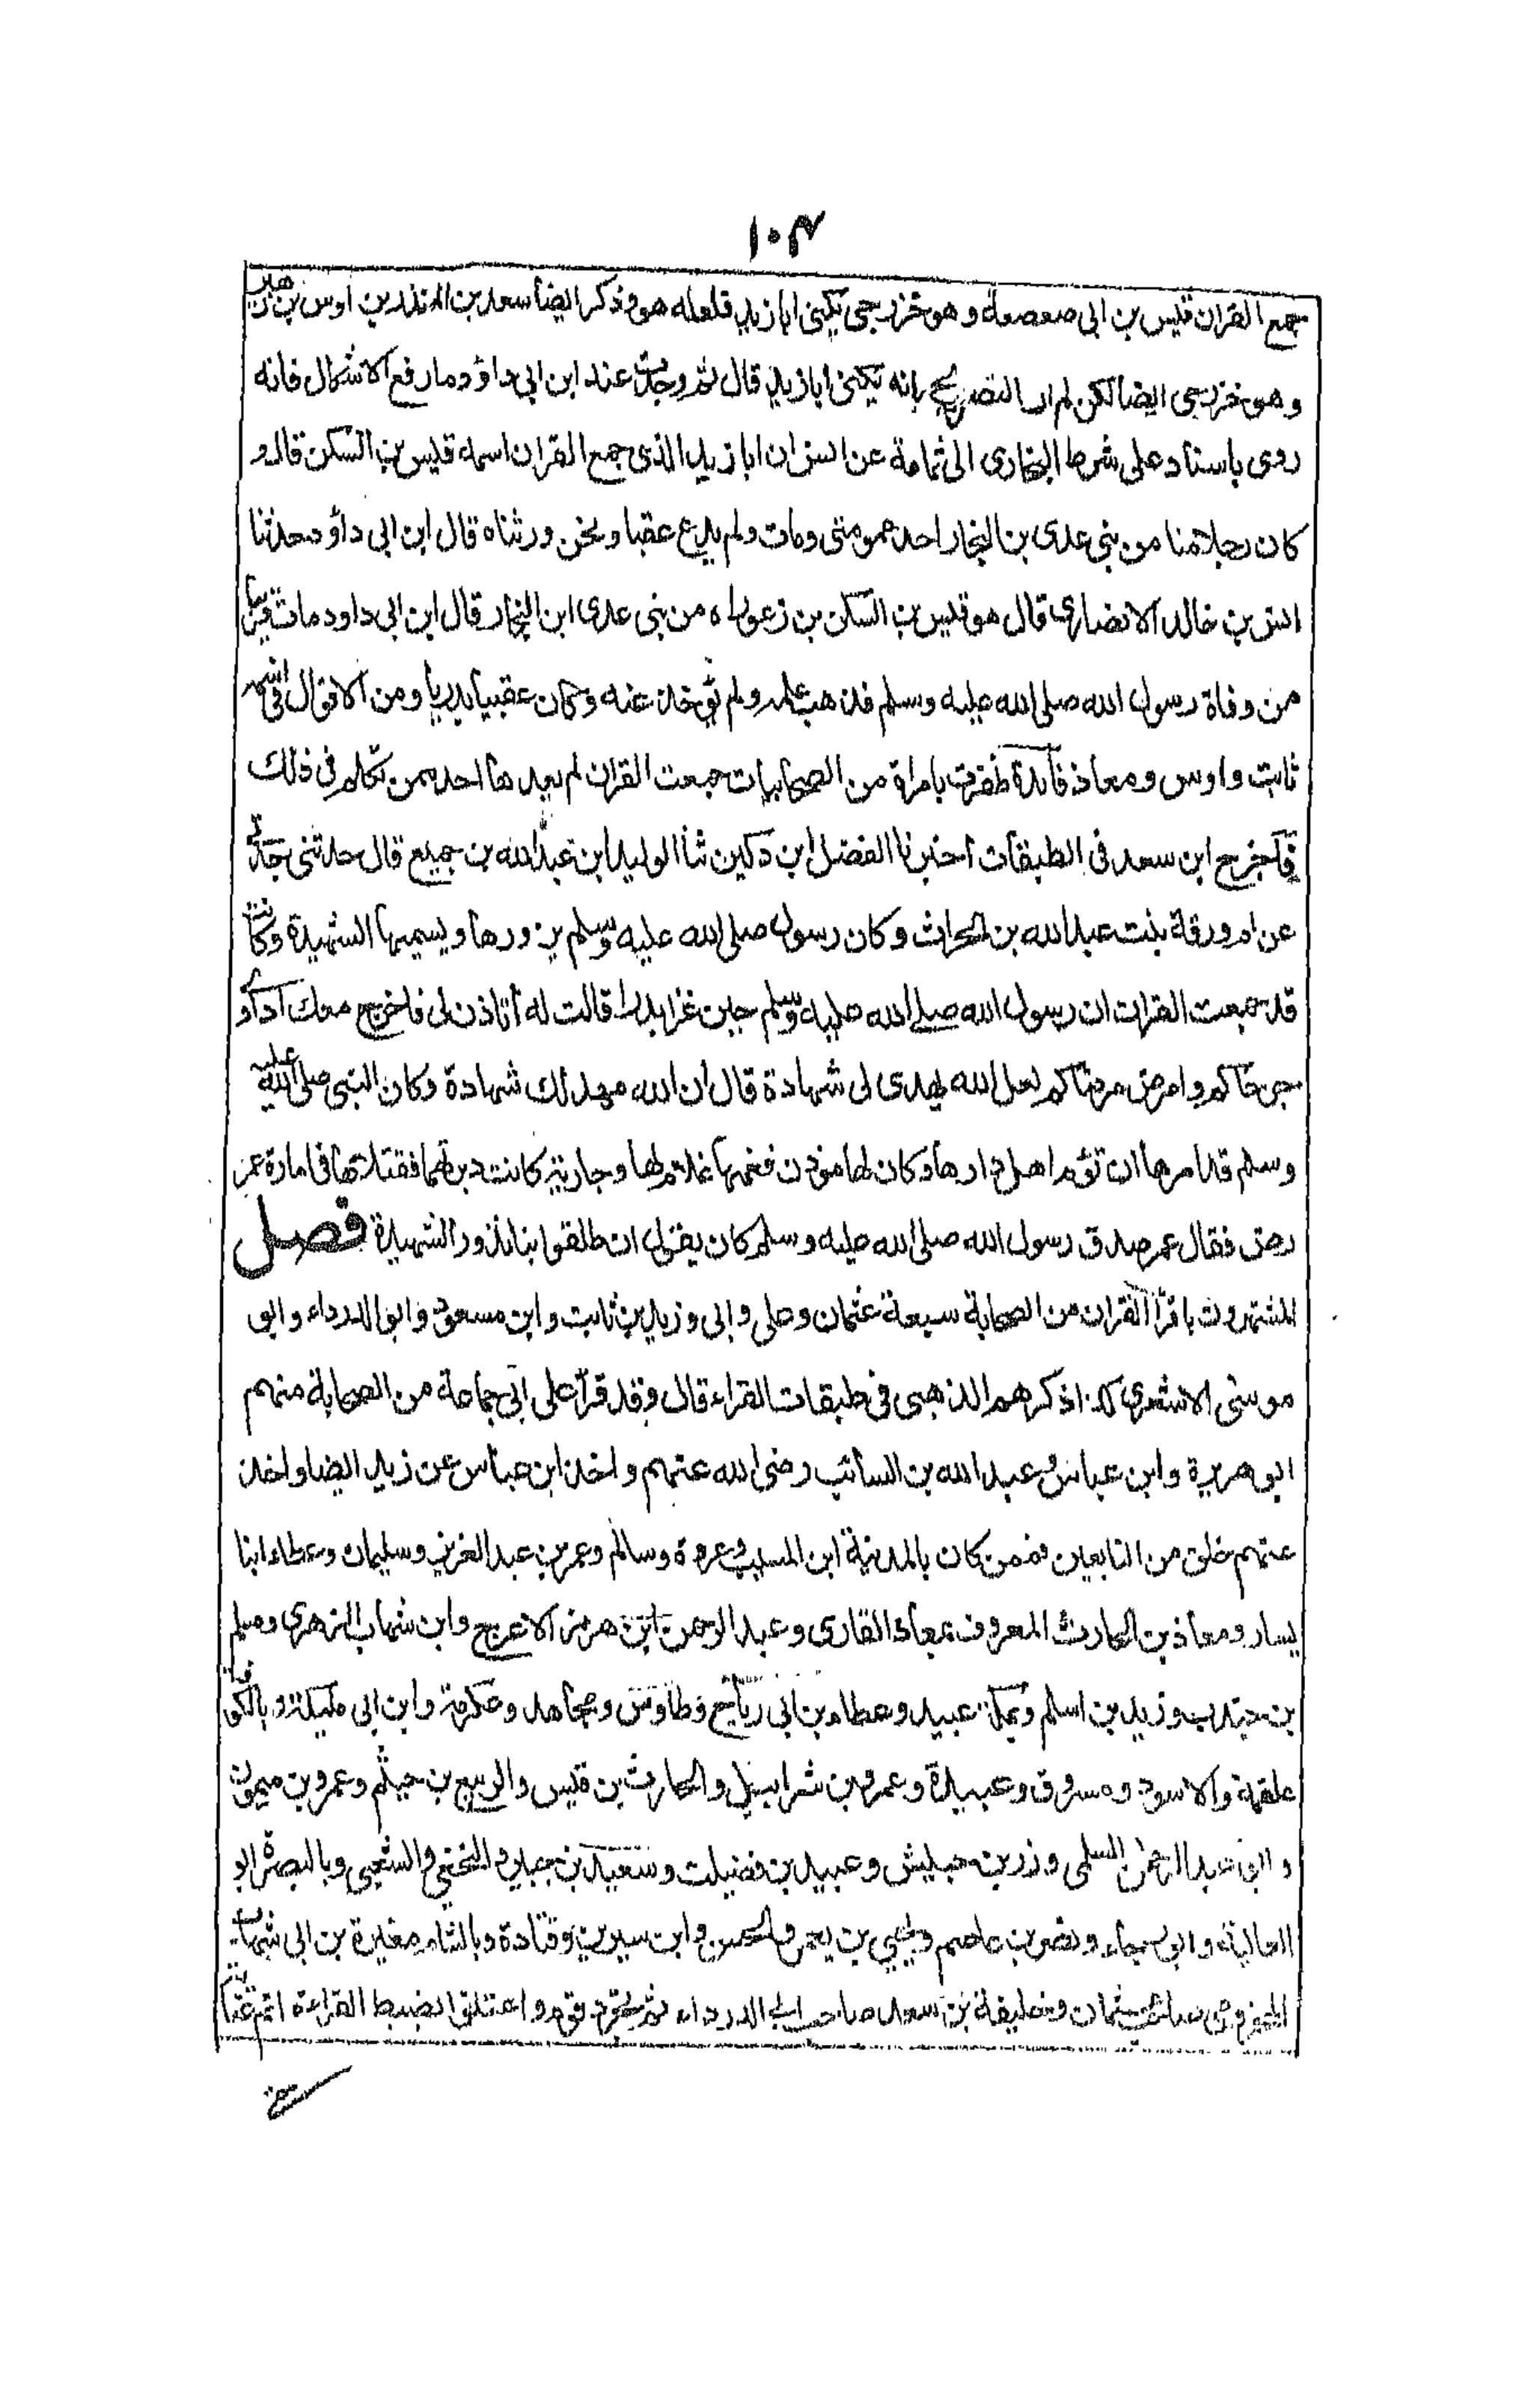 ١٠٣
جمع القران قيس بن ابى صعصعة وهو خزرجى يكنى ابا زيد فلعله هو وذكر ايضا سعد بن المنذر بن اوس بن زهير
وهو خزرجى ايضا لكن لم ار التصريح بانه يكنى ابا زيد قال ثم وجدت عند ابن ابى داؤد ما رفع الاشكال فانه
روى باسناد على شرط البخارى الى ثمامة عن انس ان ابا زيد الذى جمع القران اسمه قيس بن السكن قال و
كان رجلا منا من بنى عدى بن النجار احد عمومتى ومات ولم يدع عقبا ونحن ورثناه قال ابن ابى داؤد حدثنا
انس بن خالد الانصارى قال هو قيس بن السكن بن زعوراء من بنى عدى ابن النجار قال ابن ابى داود مات قريبا
من وفاة رسول الله صلى الله عليه وسلم فذهب علمه ولم يؤخذ عنه وكان عقبيا بدريا ومن الاقوال فى اسمه
ثابت واوس ومعاذ فائدة ظفرت بامراة من الصحابيات جمعت القران لم يعدها احد ممن تكلم فى ذلك
فاخرج ابن سعد فى الطبقات اخبرنا الفضل ابن دكين ثنا الوليد ابن عبد الله بن جميع قال حدثتنى جدتى
عن ام ورقة بنت عبد الله بن الحراث وكان رسول صلى الله عليه وسلم يزورها ويسميها الشهيدة وكانت
قد جمعت القران ان رسول الله صلى الله عليه وسلم حين غزا بدرا قالت له أتاذن لى فاخرج معك اداوى
جرحاكم وامرض مرضاكم لعل الله يهدى لى شهادة قال ان الله مهد لك شهادة وكان النبى صلى الله عليه
وسلم قد امرها ان تؤم اهل دارها وكان لها مؤذن فغمها غلام لها وجارية كانت دبرتهما فقتلاها فى امارة عمر
رض فقال عمر صدق رسول الله صلى الله عليه وسلم كان يقول انطلقوا بنا نزور الشهيدة فصل
المشتهرون باقرأ القران من الصحابة سبعة عثمان وعلى وابى وزيد بن ثابت وابن مسعود وابو الدرداء وابو
موسى الاشعرى كذا ذكرهم الذهبى فى طبقات القراء قال وقد قرأ على ابى جماعة من الصحابة منهم
ابو هريرة وابن عباس وعبد الله بن السائب رضى الله عنهم واخذ ابن عباس عن زيد ايضا واخذ
عنهم خلق من التابعين فمن كان بالمدينة ابن المسيب وعروة وسالم وعمر بن عبد العزيز وسليمان وعطاء ابنا
يسار ومعاذ بن الحارث المعروف بمعاذ القارى وعبد الرحمن ابن هرمز الاعرج وابن شهاب الزهرى ومسلم
بن جندب وزيد بن اسلم وبمكة عبيد وعطاء بن ابى رباح وطاوس ومجاهد وعكرمة وابن ابى مليكة وبالكوفة
علقمة والاسود ومسروق وعبيدة وعمرو بن شرابسيل والحارث بن قيس والربيع بن خيثم وعمرو بن ميمون
وابو عبد الرحمن السلمى وزر بن حبيش وعبيد بن فضيلت وسعيد بن جبير والنخعى والشعبى وبالبصرة ابو
العالية وابو رجاء ونصر بن عاصم ويحيى بن يعمر والحسن وابن سيرين وقتادة وبالشام مغيرة بن ابى شهاب
المخزومى صاحب عثمان وخليفة بن سعد صاحب ابى الدرداء ثم تجرد قوم واعتنوا بضبط القراءة اتم عناية